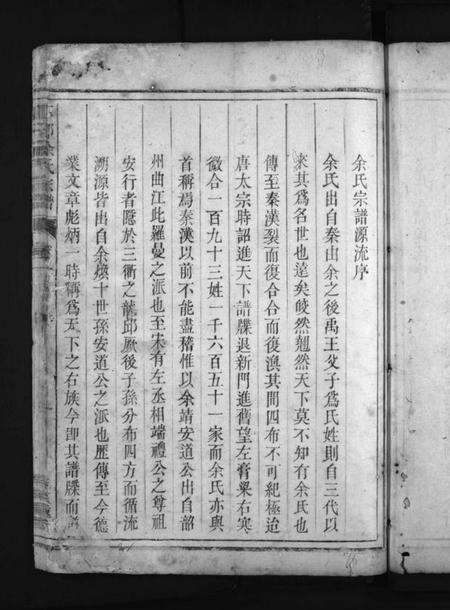 余氏宗譜源流序
余氏出自秦由余之後禹王父子爲氏姓則自三代以
來其爲名世也遠矣皎然翹然天下莫不知有余氏也
傳至秦漢裂而復合合而復渙其間四布不可紀極迨
唐太宗時詔進天下譜牒退新門進舊望左膏粱右寒
微合一百九十三姓一千六百五十一家而余氏亦與
首稱焉秦漢以前不能盡稽惟以余靖安道公出自韶
州曲江此羅曼之派也至宋有左丞相端禮公之尊祖
安行者隱於三衢之龍邱厥後子孫分布四方而循流
溯源皆出自余襄十世孫安道公之派也歷傳至今德
業文章彪炳一時稱爲天下之右族今卽其譜牒而
余氏宗譜